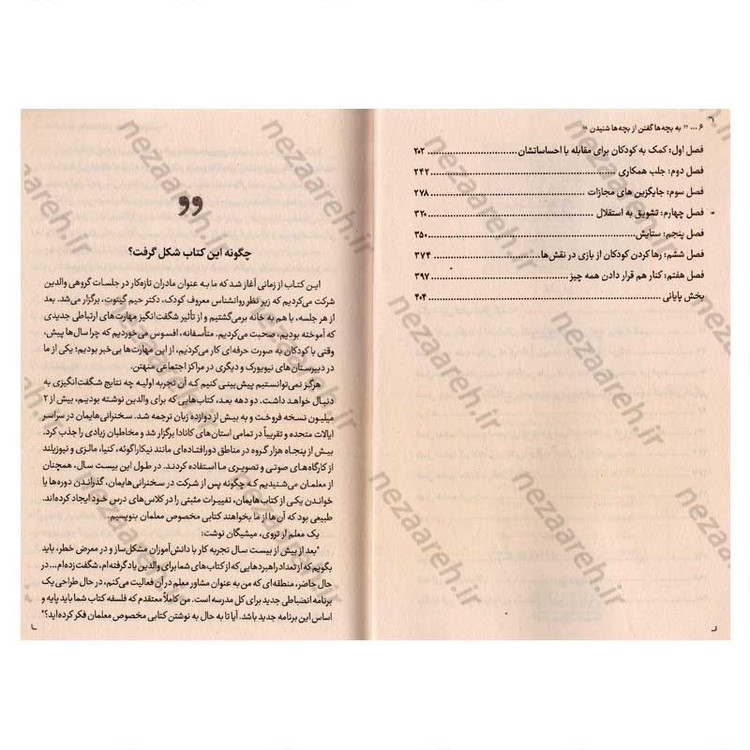 ۶ ... " به بچه‌ها گفتن از بچه‌ها شنیدن "
فصل اول: کمک به کودکان برای مقابله با احساساتشان ........ ۲۰۲
فصل دوم: جلب همکاری ........ ۲۴۲
فصل سوم: جایگزین های مجازات ........ ۲۷۸
فصل چهارم: تشویق به استقلال ........ ۳۲۰
فصل پنجم: ستایش ........ ۳۵۰
فصل ششم: رها کردن کودکان از بازی در نقش‌ها ........ ۳۷۴
فصل هفتم: کنار هم قرار دادن همه چیز ........ ۳۹۷
بخش پایانی ........ ۴۰۴
چگونه این کتاب شکل گرفت؟
این کتاب از زمانی آغاز شد که ما به عنوان مادران تازه‌کار در جلسات گروهی والدین
شرکت می‌کردیم که زیر نظر روانشناس معروف کودک، دکتر حیم گینوت، برگزار می‌شد. بعد
از هر جلسه، با هم به خانه برمی‌گشتیم و از تأثیر شگفت‌انگیز مهارت‌های ارتباطی جدیدی
که آموخته بودیم، صحبت می‌کردیم. متأسفانه، افسوس می‌خوردیم که چرا سال‌ها پیش،
وقتی با کودکان به صورت حرفه‌ای کار می‌کردیم، از این مهارت‌ها بی‌خبر بودیم؛ یکی از ما
در دبیرستان‌های نیویورک و دیگری در مراکز اجتماعی منهتن.
هرگز نمی‌توانستیم پیش‌بینی کنیم که آن تجربه اولیه چه نتایج شگفت‌انگیزی به
دنبال خواهد داشت. دو دهه بعد، کتاب‌هایی که برای والدین نوشته بودیم، بیش از ۲
میلیون نسخه فروخت و به بیش از دوازده زبان ترجمه شد. سخنرانی‌هایمان در سراسر
ایالات متحده و تقریباً در تمامی استان‌های کانادا برگزار شد و مخاطبان زیادی را جذب کرد.
بیش از پنجاه هزار گروه در مناطق دورافتاده‌ای مانند نیکاراگوئه، کنیا، مالزی و نیوزیلند
از کارگاه‌های صوتی و تصویری ما استفاده کردند. در طول این بیست سال، همچنان
از معلمان می‌شنیدیم که چگونه پس از شرکت در سخنرانی‌هایمان، گذراندن دوره‌ها یا
خواندن یکی از کتاب‌هایمان، تغییرات مثبتی را در کلاس‌های درس خود ایجاد کرده‌اند.
طبیعی بود که آن‌ها از ما بخواهند کتابی مخصوص معلمان بنویسیم.
یک معلم از تروی، میشیگان نوشت:
"بعد از بیش از بیست سال تجربه کار با دانش‌آموزان مشکل‌ساز و در معرض خطر، باید
بگویم که از تعداد راهبردهایی که از کتاب‌های شما برای والدین یاد گرفته‌ام، شگفت‌زده‌ام... در
حال حاضر، منطقه‌ای که من به عنوان مشاور معلم در آن فعالیت می‌کنم، در حال طراحی یک
برنامه انضباطی جدید برای کل مدرسه است. من کاملاً معتقدم که فلسفه کتاب شما باید پایه و
اساس این برنامه جدید باشد. آیا تا به حال به نوشتن کتابی مخصوص معلمان فکر کرده‌اید؟"
nezaareh.ir